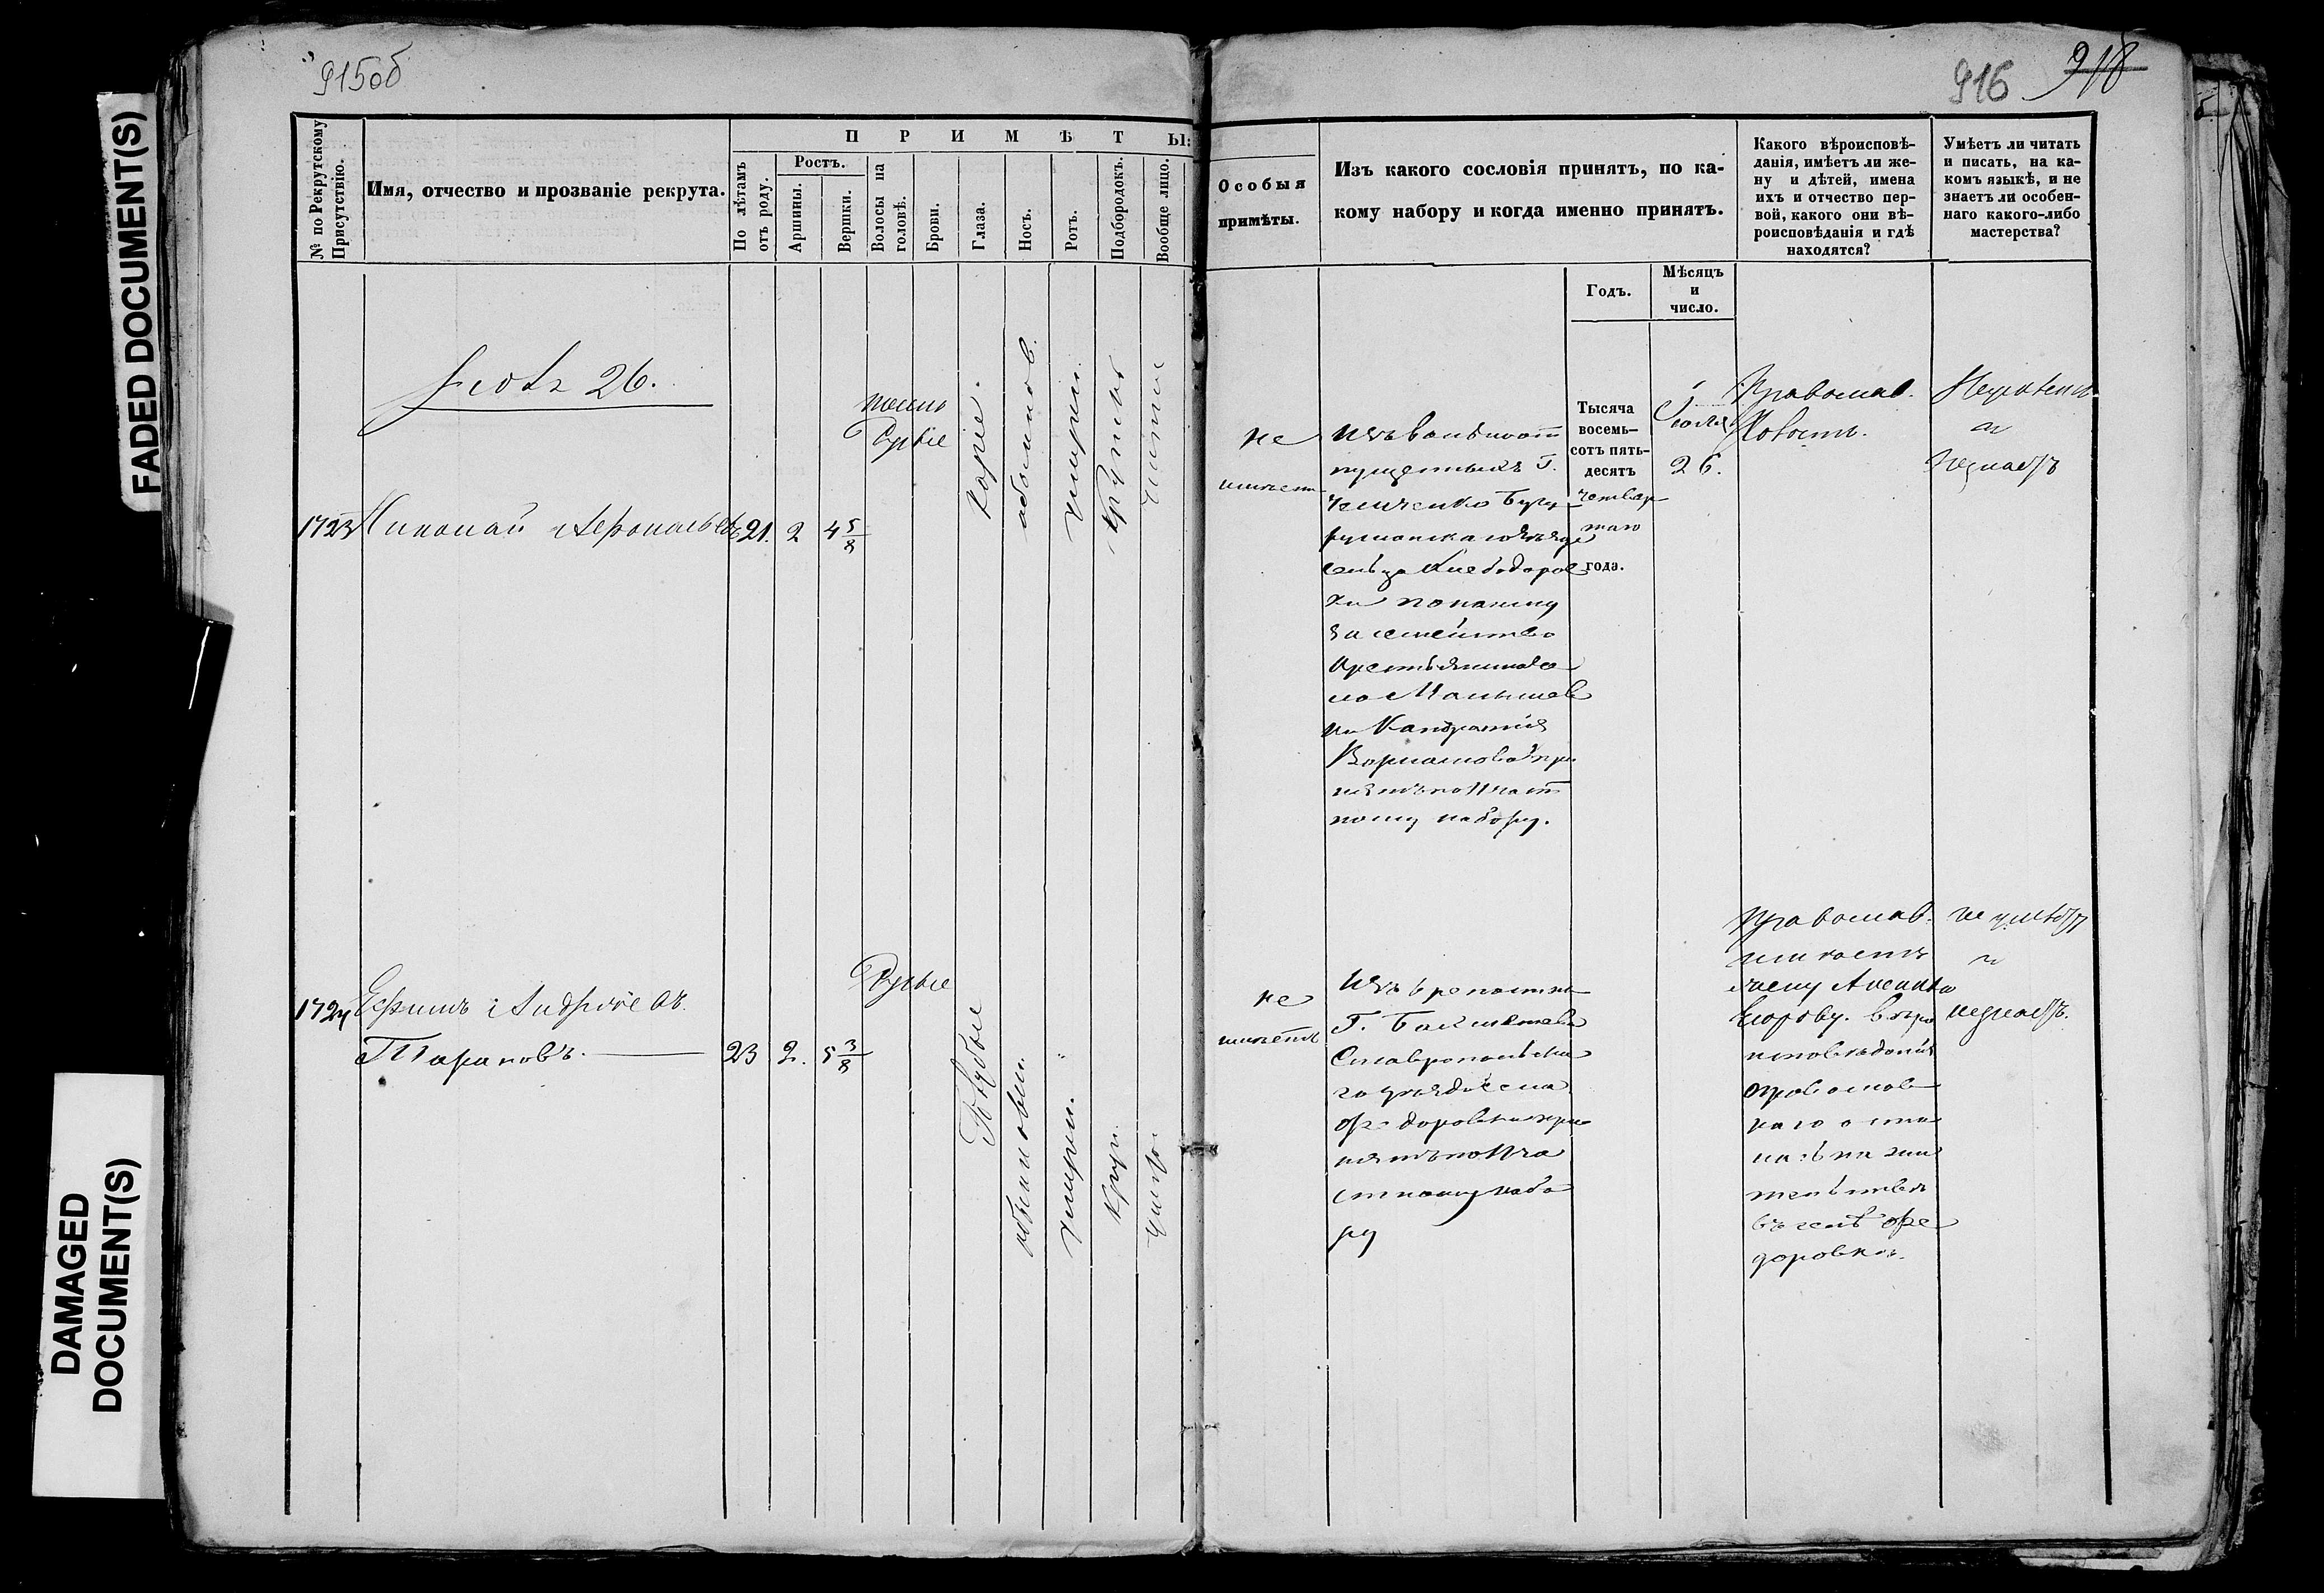 FADED DOCUMENT(S)
DAMAGED
DOCUMENT(S)
915об
916 918
№ по Рекрутскому
Присутствію.
Имя, отчество и прозваніе рекрута.
П Р И М Ѣ Т Ы:
По лѣтамъ
отъ роду.
Ростъ.
Аршины.
Вершки.
Волосы на
головѣ.
Брови.
Глаза.
Носъ.
Ротъ.
Подбородокъ.
Вообще лицо.
Особыя
примѣты.
Изъ какого сословія принятъ, по ка-
кому набору и когда именно принятъ.
Годъ.
Мѣсяцъ
и
число.
Какого вѣроисповѣ-
данія, имѣетъ ли же-
ну и дѣтей, имена
ихъ и отчество пер-
вой, какого они вѣ-
роисповѣданія и гдѣ
находятся?
Умѣетъ ли читать
и писать, на ка-
комъ языкѣ, и не
знаетъ ли особен-
наго какого-либо
мастерства?
26.
1723 Николай Афонасьевъ 21. 2 4 5/8
темно
Русые
Каріе.
обыкнов.
умѣрен.
Круглый
чистое
не
имѣетъ
Изъ вольноот
пущенныхъ Г.
Бугу-
русланскаго уѣзда
сельца
ки по найму
за семейство
крестьянина
Кандратія
при
нятъ по Част
ному набору.
Тысяча
восемь-
сотъ пять-
десятъ
четвер-
таго
года.
Іюля
26.
Православ.
Холостъ.
Неумѣетъ
и
незнаетъ
1724 Ефимъ Андреевъ
Тарановъ. 23 2. 5 3/8
Русые
Голубые
обыкновен.
умѣрен.
кругл.
чистое
не
имѣетъ
Изъ крепостны
Г. Бахметева
Ставропольска
го уѣзда села
Федоровки при
нятъ по Ча
стному набо
ру
Православ.
имѣетъ
жену
Егорову. веро
исповѣданія
православ
наго оста
лась на жи
тельствѣ
въ селѣ Фе
доровкѣ.
не умѣетъ
и
незнаетъ.